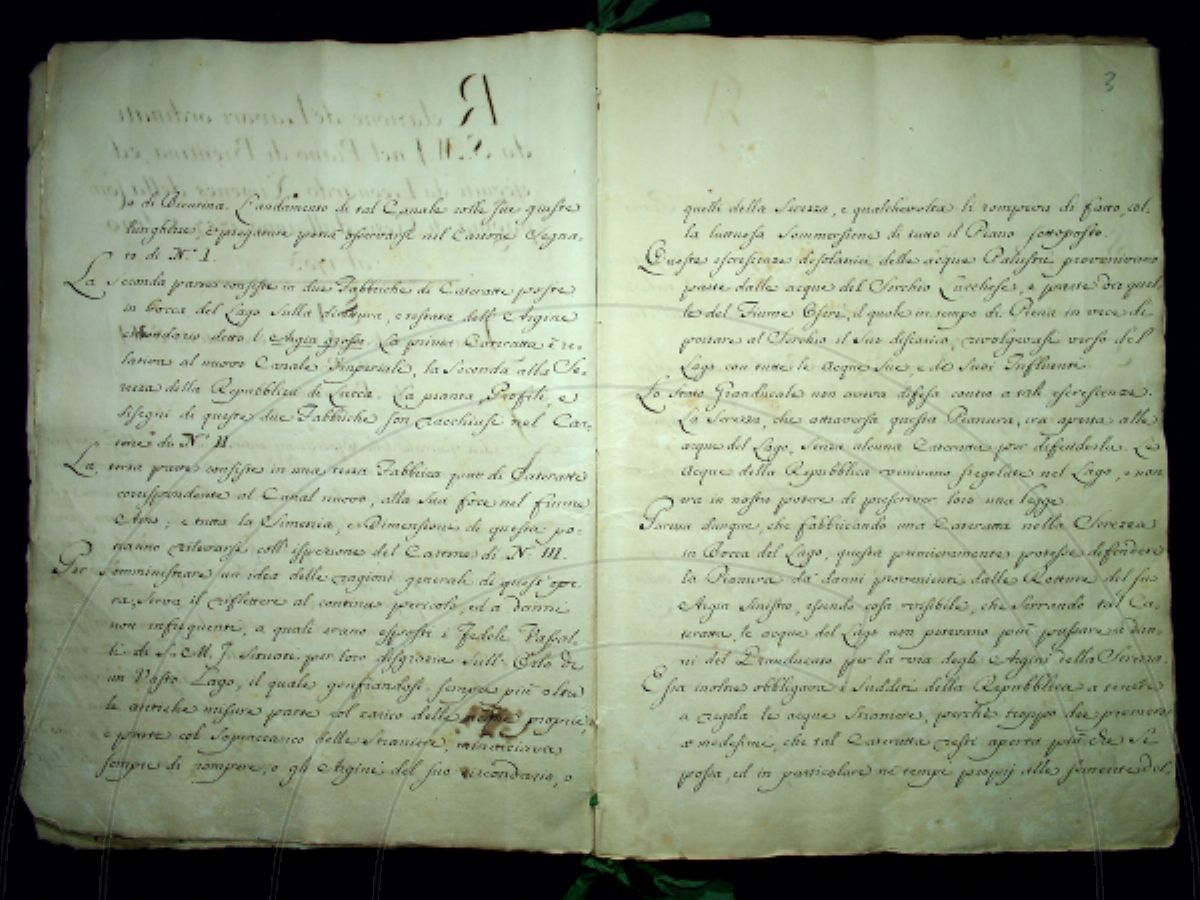 go di Bientina. L'andamento di tal Canale colle sue giuste
lunghezze, e piegature potrà osservarsi nel Cartone segna-
to di N.º I.
La seconda parte consiste in due Fabbriche di Cateratte poste
in bocca del Lago sulla dirittura, e testata dell'Argine
Circondario detto l'Argin grosso. La prima Cateratta è re-
lativa al nuovo Canale Imperiale, la seconda alla Se-
rezza della Repubblica di Lucca. La pianta, Profili, e
disegni di queste due Fabbriche son racchiuse nel Car-
tone di N.º II.
La terza parte consiste in una terza Fabbrica pure di Cateratte
corrispondente al Canal nuovo, alla sua foce nel fiume
Arno; e tutta la Simetria, e Dimensione di questa po-
tranno rilevarsi coll'ispezione del Cartone di N. III.
Per somministrare un'idea delle ragioni generali di quest'ope-
ra, serva il riflettere al continuo pericolo, ed a' danni
non infrequenti, a quali erano esposti i Fedeli Vassal-
li di S. M. I. situati per loro disgrazia sull' Orlo di
un Vasto Lago, il quale gonfiandosi sempre più oltre
le antiche misure parte col carico delle acque proprie,
e parte col sopraccarico delle straniere, minacciava
sempre di rompere, o gli Argini del suo circondario, o
3
quelli della Serezza, e qualchevolta li rompeva di fatto, col-
la luttuosa sommersione di tutto il Piano sottoposto.
Queste escrescenze desolatrici delle acque Palustri provenivano
parte dalle acque del Serchio Lucchese, e parte da quel-
le del Fiume Oseri, il quale in tempo di Piena in vece di
portare al Serchio il suo discarico, rivolgevasi verso del
Lago con tutte le Acque sue, e de' suoi Influenti.
Lo Stato Granducale non aveva difesa contro a tali escrescenze.
La Serezza, che attraversa questa Pianura, era aperta alle
acque del Lago, senza alcuna Cateratta per difenderla. Le
Acque della Repubblica venivano sregolate nel Lago, e non
era in nostro potere di prescriver loro una legge.
Pareva dunque, che fabbricando una Cateratta nella Serezza
in Bocca del Lago, questa primieramente potesse difendere
la Pianura da' danni provenienti dalle Rotture del suo
Argin sinistro, essendo cosa visibile, che serrando tal Ca-
teratta, le acque del Lago non potevano più passare a dan-
ni del Granducato per la via degli Argini della Serezza.
Essa inoltre obbligava i Sudditi della Repubblica a tenere
a regola le acque straniere, perchè troppo dee premere
a' medesimi, che tal Cateratta resti aperta più che si
possa, ed in particolare ne' tempi proprj alle semente del-